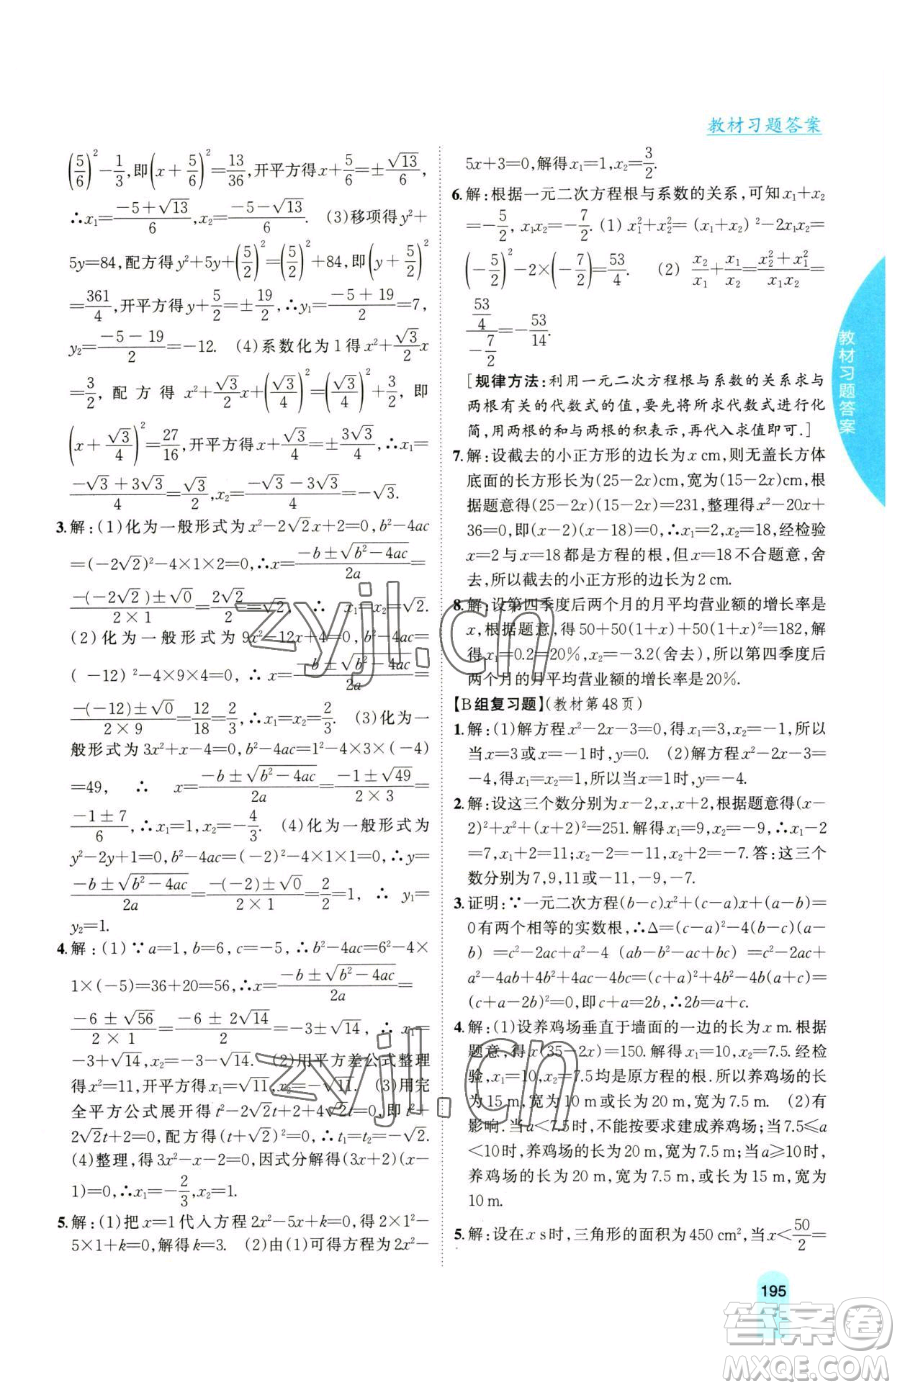 教材习题答案
(5/6)²-1/3,即(x+5/6)²=13/36,开平方得x+5/6=±√13/6,
∴x₁=(-5+√13)/6,x₂=(-5-√13)/6. (3)移项得y²+
5y=84,配方得y²+5y+(5/2)²=(5/2)²+84,即(y+5/2)²
=361/4,开平方得y+5/2=±19/2,∴y₁=(-5+19)/2=7,
y₂=(-5-19)/2=-12. (4)系数化为1得x²+√3/2x
=3/2,配方得x²+√3/2x+(√3/4)²=3/2+(√3/4)²,即
(x+√3/4)²=27/16,开平方得x+√3/4=±3√3/4,∴x₁=
(-√3+3√3)/4=√3/2,x₂=(-√3-3√3)/4=-√3.
3.解:(1)化为一般形式为x²-2√2x+2=0,b²-4ac
=(-2√2)²-4×1×2=0,∴x=(-b±√(b²-4ac))/2a=
(-(-2√2)±√0)/(2×1)=2√2/2=√2.∴x₁=x₂=√2.
(2)化为一般形式为9x²-12x+4=0,b²-4ac=
(-12)²-4×9×4=0,∴x=(-b±√(b²-4ac))/2a=
(-(-12)±√0)/(2×9)=12/18=2/3,∴x₁=x₂=2/3. (3)化为一
般形式为3x²+x-4=0,b²-4ac=1²-4×3×(-4)
=49, ∴ x=(-b±√(b²-4ac))/2a=(-1±√49)/(2×3)=
(-1±7)/6,∴x₁=1,x₂=-4/3. (4)化为一般形式为
y²-2y+1=0,b²-4ac=(-2)²-4×1×1=0,∴y=
(-b±√(b²-4ac))/2a=(-(-2)±√0)/(2×1)=2/2=1,∴y₁=
y₂=1.
4.解:(1)∵a=1,b=6,c=-5,∴b²-4ac=6²-4×
1×(-5)=36+20=56,∴x=(-b±√(b²-4ac))/2a=
(-6±√56)/(2×1)=(-6±2√14)/2=-3±√14,∴x₁=
-3+√14,x₂=-3-√14. (2)用平方差公式整理
得x²=11,开平方得x₁=√11,x₂=-√11. (3)用完
全平方公式展开得t²-2√2t+2+4√2t=0,即t²+
2√2t+2=0,配方得(t+√2)²=0,∴t₁=t₂=-√2.
(4)整理,得3x²-x-2=0,因式分解得(3x+2)(x-
1)=0,∴x₁=-2/3,x₂=1.
5.解:(1)把x=1代入方程2x²-5x+k=0,得2×1²-
5×1+k=0,解得k=3. (2)由(1)可得方程为2x²-
5x+3=0,解得x₁=1,x₂=3/2.
6.解:根据一元二次方程根与系数的关系,可知x₁+x₂
=-5/2,x₁x₂=-7/2. (1) x₁²+x₂²=(x₁+x₂)²-2x₁x₂=
(-5/2)²-2×(-7/2)=53/4. (2) x₂/x₁+x₁/x₂=(x₂²+x₁²)/x₁x₂=
(53/4)/(-7/2)=-53/14.
[规律方法:利用一元二次方程根与系数的关系求与
两根有关的代数式的值,要先将所求代数式进行化
简,用两根的和与两根的积表示,再代入求值即可.]
7.解:设截去的小正方形的边长为x cm,则无盖长方体
底面的长方形长为(25-2x)cm,宽为(15-2x)cm,
根据题意得(25-2x)(15-2x)=231,整理得x²-20x+
36=0,即(x-2)(x-18)=0,∴x₁=2,x₂=18,经检验
x=2与x=18都是方程的根,但x=18不合题意,舍
去,所以截去的小正方形的边长为2 cm.
8.解:设第四季度后两个月的月平均营业额的增长率是
x,根据题意,得50+50(1+x)+50(1+x)²=182,
解得x₁=0.2=20%,x₂=-3.2(舍去),所以第四季度后
两个月的月平均营业额的增长率是20%.
【B组复习题】(教材第48页)
1.解:(1)解方程x²-2x-3=0,得x₁=3,x₂=-1,所以
当x=3或x=-1时,y=0. (2)解方程x²-2x-3=
-4,得x₁=x₂=1,所以当x=1时,y=-4.
2.解:设这三个数分别为x-2,x,x+2,根据题意得(x-
2)²+x²+(x+2)²=251.解得x₁=9,x₂=-9,∴x₁-2
=7,x₁+2=11,x₂-2=-11,x₂+2=-7.答:这三个
数分别为7,9,11或-11,-9,-7.
3.证明:∵一元二次方程(b-c)x²+(c-a)x+(a-b)=
0有两个相等的实数根,∴Δ=(c-a)²-4(b-c)(a-b)
=c²-2ac+a²-4(ab-b²-ac+bc)=c²-2ac+
a²-4ab+4b²+4ac-4bc=(c+a)²-4b(a+c)+4b²=
(c+a-2b)²=0,∴c+a-2b=0,∴2b=a+c.
4.解:(1)设养鸡场垂直于墙面的一边的长为x m.根据
题意,得x(35-2x)=150.解得x₁=10,x₂=7.5.经检
验,x₁=10,x₂=7.5均是原方程的根.所以养鸡场的长
为15 m,宽为10 m或长为20 m,宽为7.5 m. (2)有
影响.当a<7.5时,不能按要求建成养鸡场;当7.5≤
a<10时,养鸡场的长为20 m,宽为7.5 m;当a≥10时,
养鸡场的长为20 m,宽为7.5 m或长为15 m,宽为
10 m.
5.解:设在x s时,三角形的面积为450 cm².当x<50/2=
教材习题答案
195
zyjl.cn
zyjl.cn
答案圈
MXQE.COM